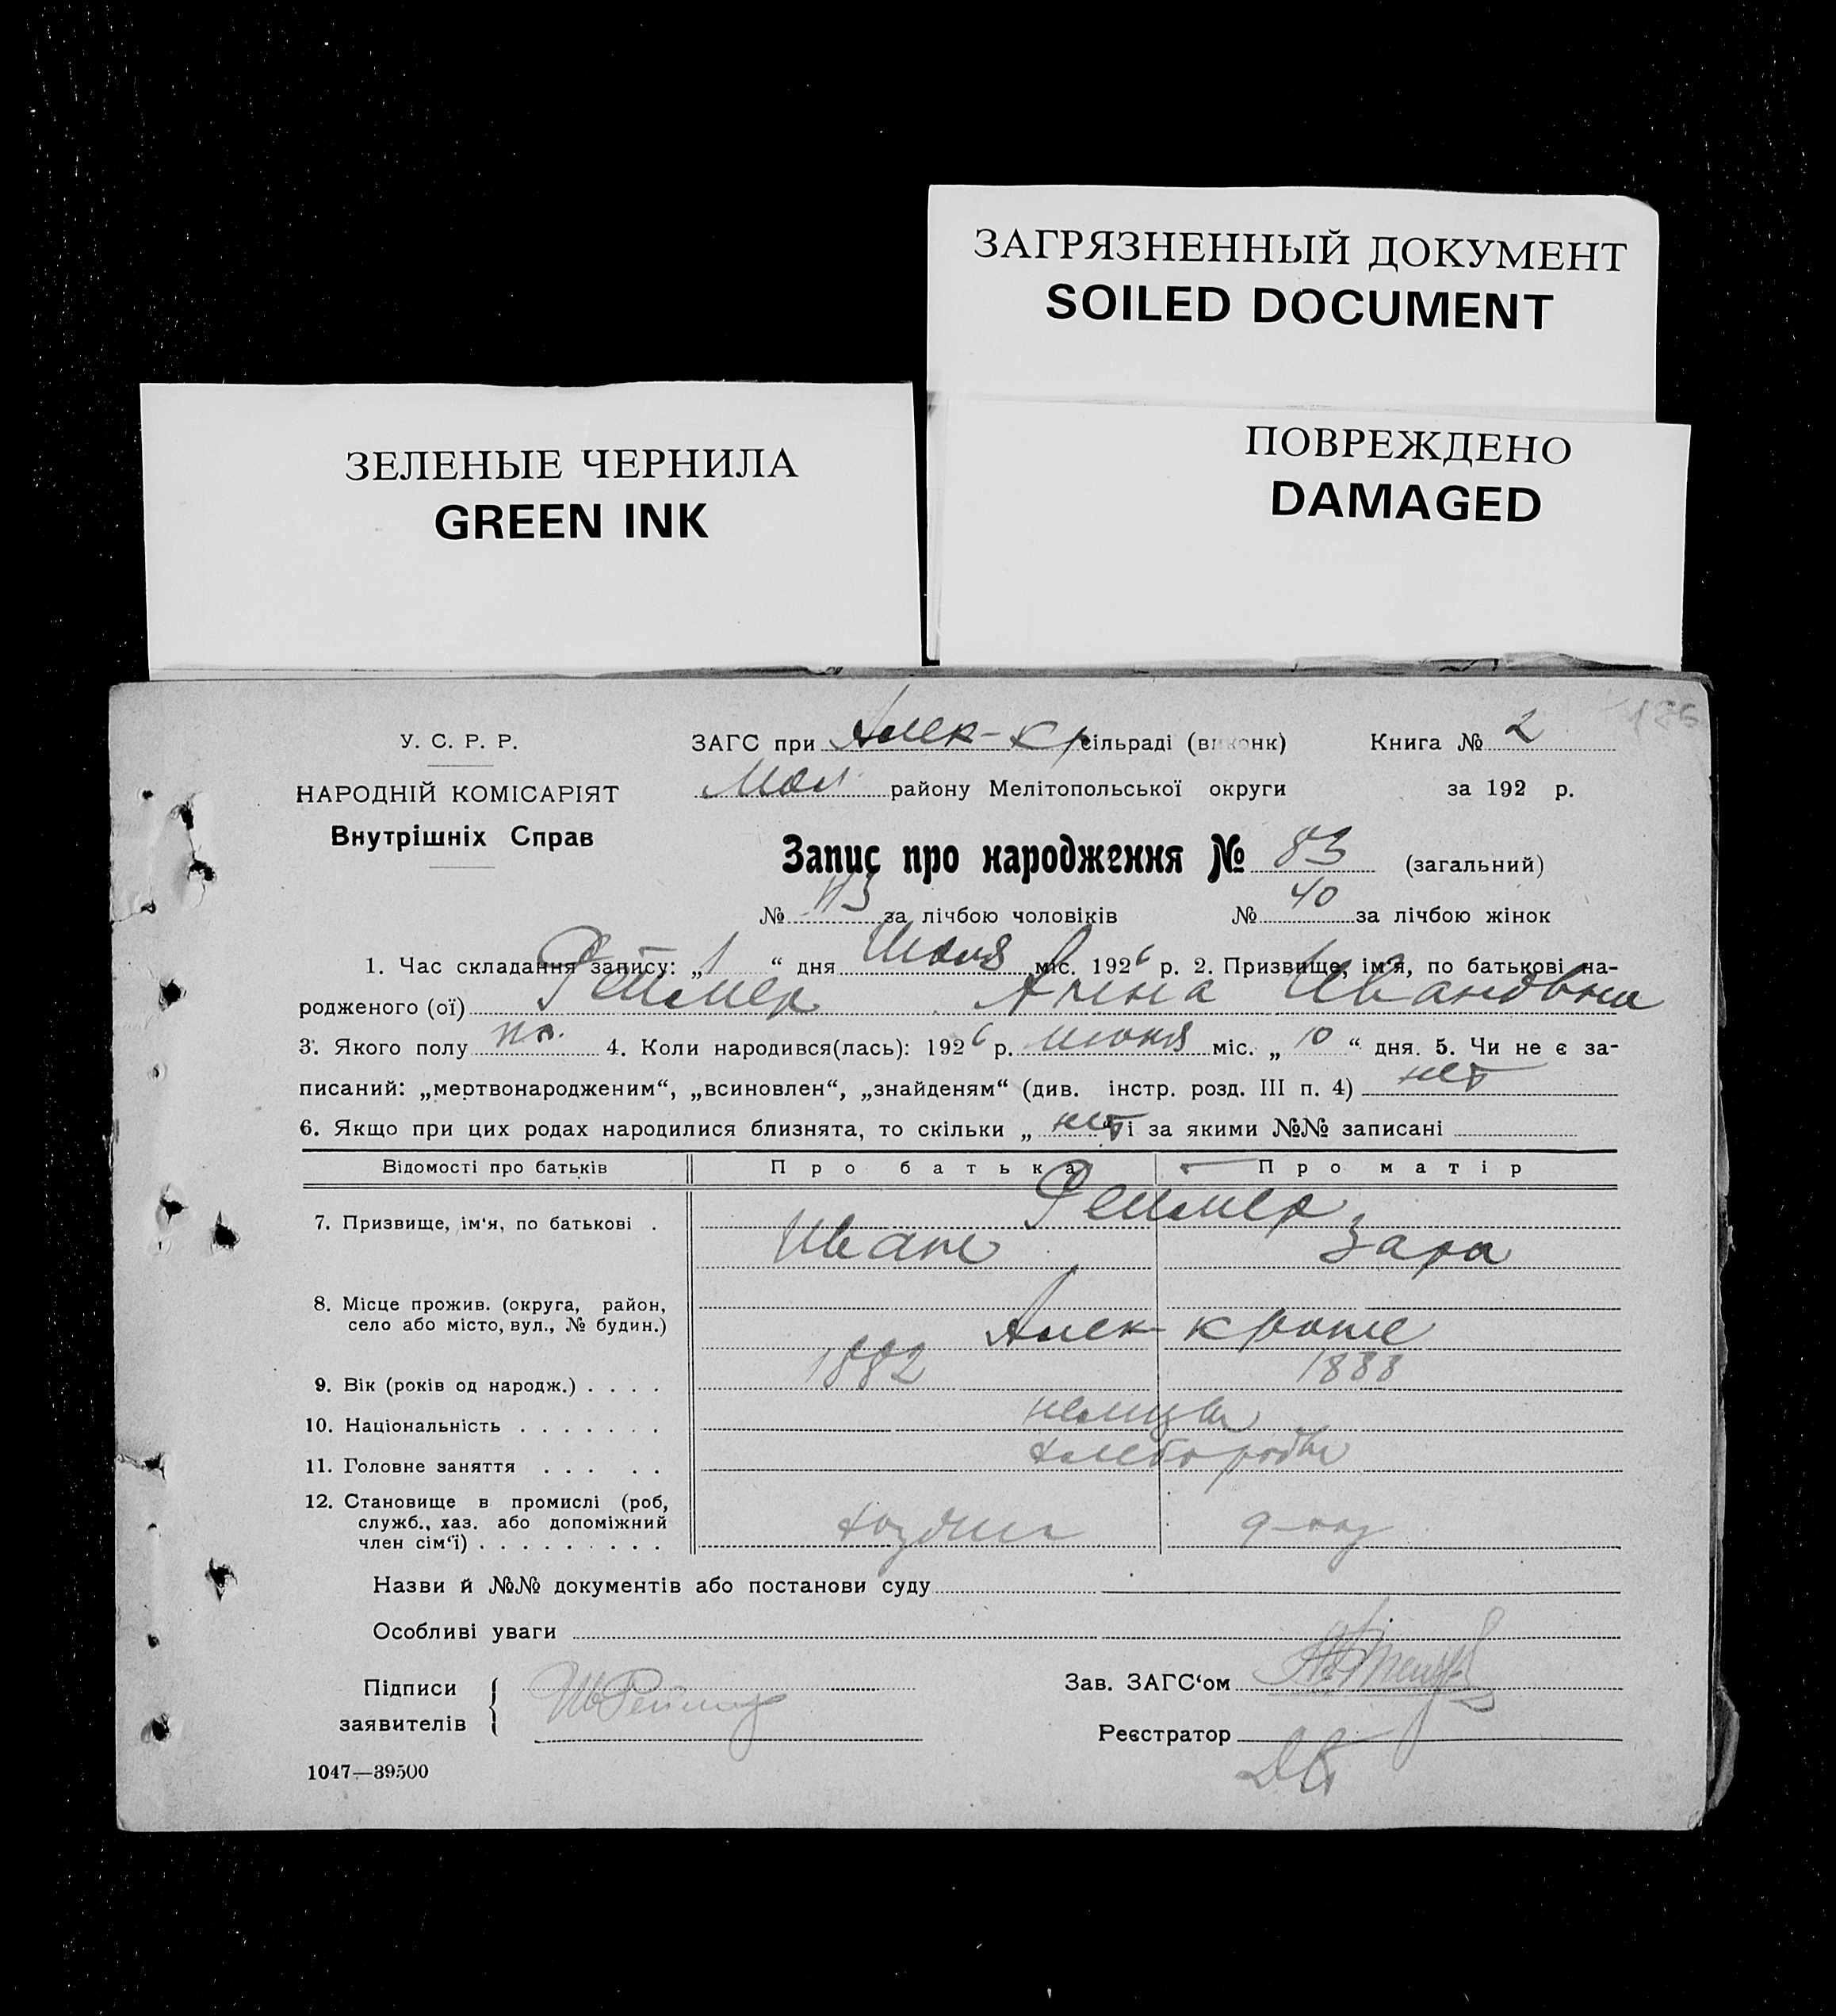 ЗАГРЯЗНЕННЫЙ ДОКУМЕНТ
SOILED DOCUMENT
ЗЕЛЕНЫЕ ЧЕРНИЛА
GREEN INK
ПОВРЕЖДЕНО
DAMAGED
186
У. С. Р. Р.
НАРОДНІЙ КОМІСАРІЯТ
Внутрішніх Справ
ЗАГС при Алек-кр сільраді (виконк) Книга № 2
Мол району Мелітопольської округи за 192 р.
Запис про народження № 83 (загальний)
№ за лічбою чоловіків № 40 за лічбою жінок
1. Час складання запису: „1“ дня Июля міс. 1926 р. 2. Призвище, ім'я, по батькові на-
родженого (ої) Реймер Анна Ивановна
3. Якого полу 4. Коли народився(лась): 1926 р. июня міс. „10“ дня. 5. Чи не є за-
писаний: „мертвонародженим“, „всиновлен“, „знайденям“ (див. інстр. розд. III п. 4) нет
6. Якщо при цих родах народилися близнята, то скільки „нет і за якими №№ записані
Відомості про батьків Про батька Про матір
7. Призвище, ім'я, по батькові . Реймер
Иван Зара
8. Місце прожив. (округа, район,
село або місто, вул., № будин.) Алек-кроне
9. Вік (років од народж.) . . . . 1882 1888
10. Національність . . . . . . . немцы
11. Головне заняття . . . . . хлебороды
12. Становище в промислі (роб,
служб., хаз. або допоміжний
член сім'ї) . . . . . . . . .
Назви й №№ документів або постанови суду
Особливі уваги
Підписи
заявителів Ив Реймер
Зав. ЗАГС'ом
Реєстратор
1047—39500